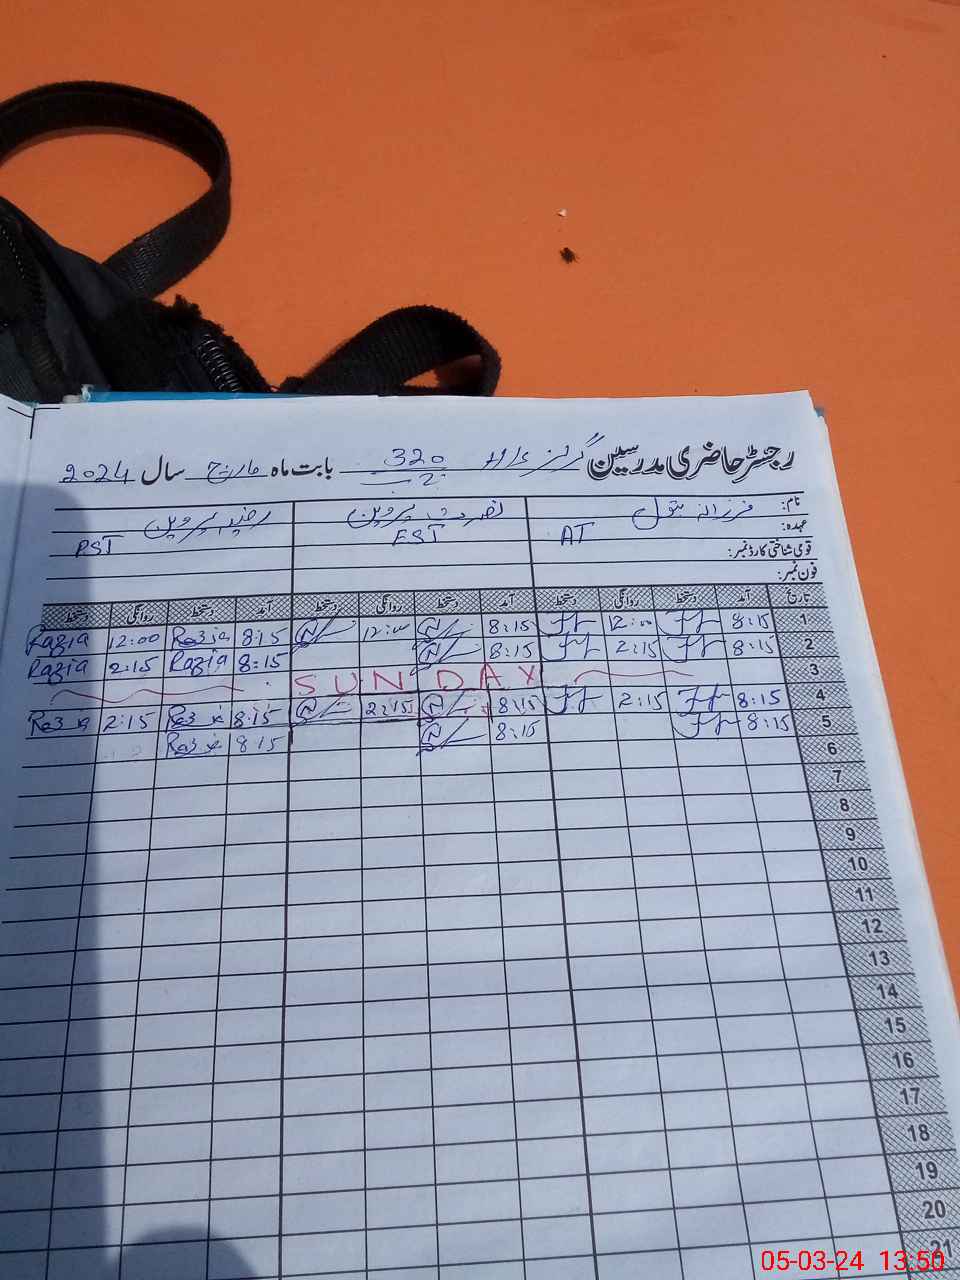 رجسٹر حاضری مدرسین گرلز ہائی 320 بابت ماہ مارچ سال 2024
ج ب
نام: فرزانہ بتول نصرت پروین رضیہ پروین
عہدہ: AT EST PST
قومی شناختی کارڈ نمبر:
فون نمبر:
تاریخ آمد دستخط روانگی دستخط آمد دستخط روانگی دستخط آمد دستخط روانگی دستخط
1 8:15 12:00 8:15 12:00 8:15 Razia 12:00 Razia
2 8:15 2:15 8:15 8:15 Razia 2:15 Razia
3 SUNDAY
4 8:15 2:15 8:15 2:15 8:15 Razia 2:15 Razia
5 8:15 8:15 8:15 Razia
6
7
8
9
10
11
12
13
14
15
16
17
18
19
20
21
05-03-24 13:50